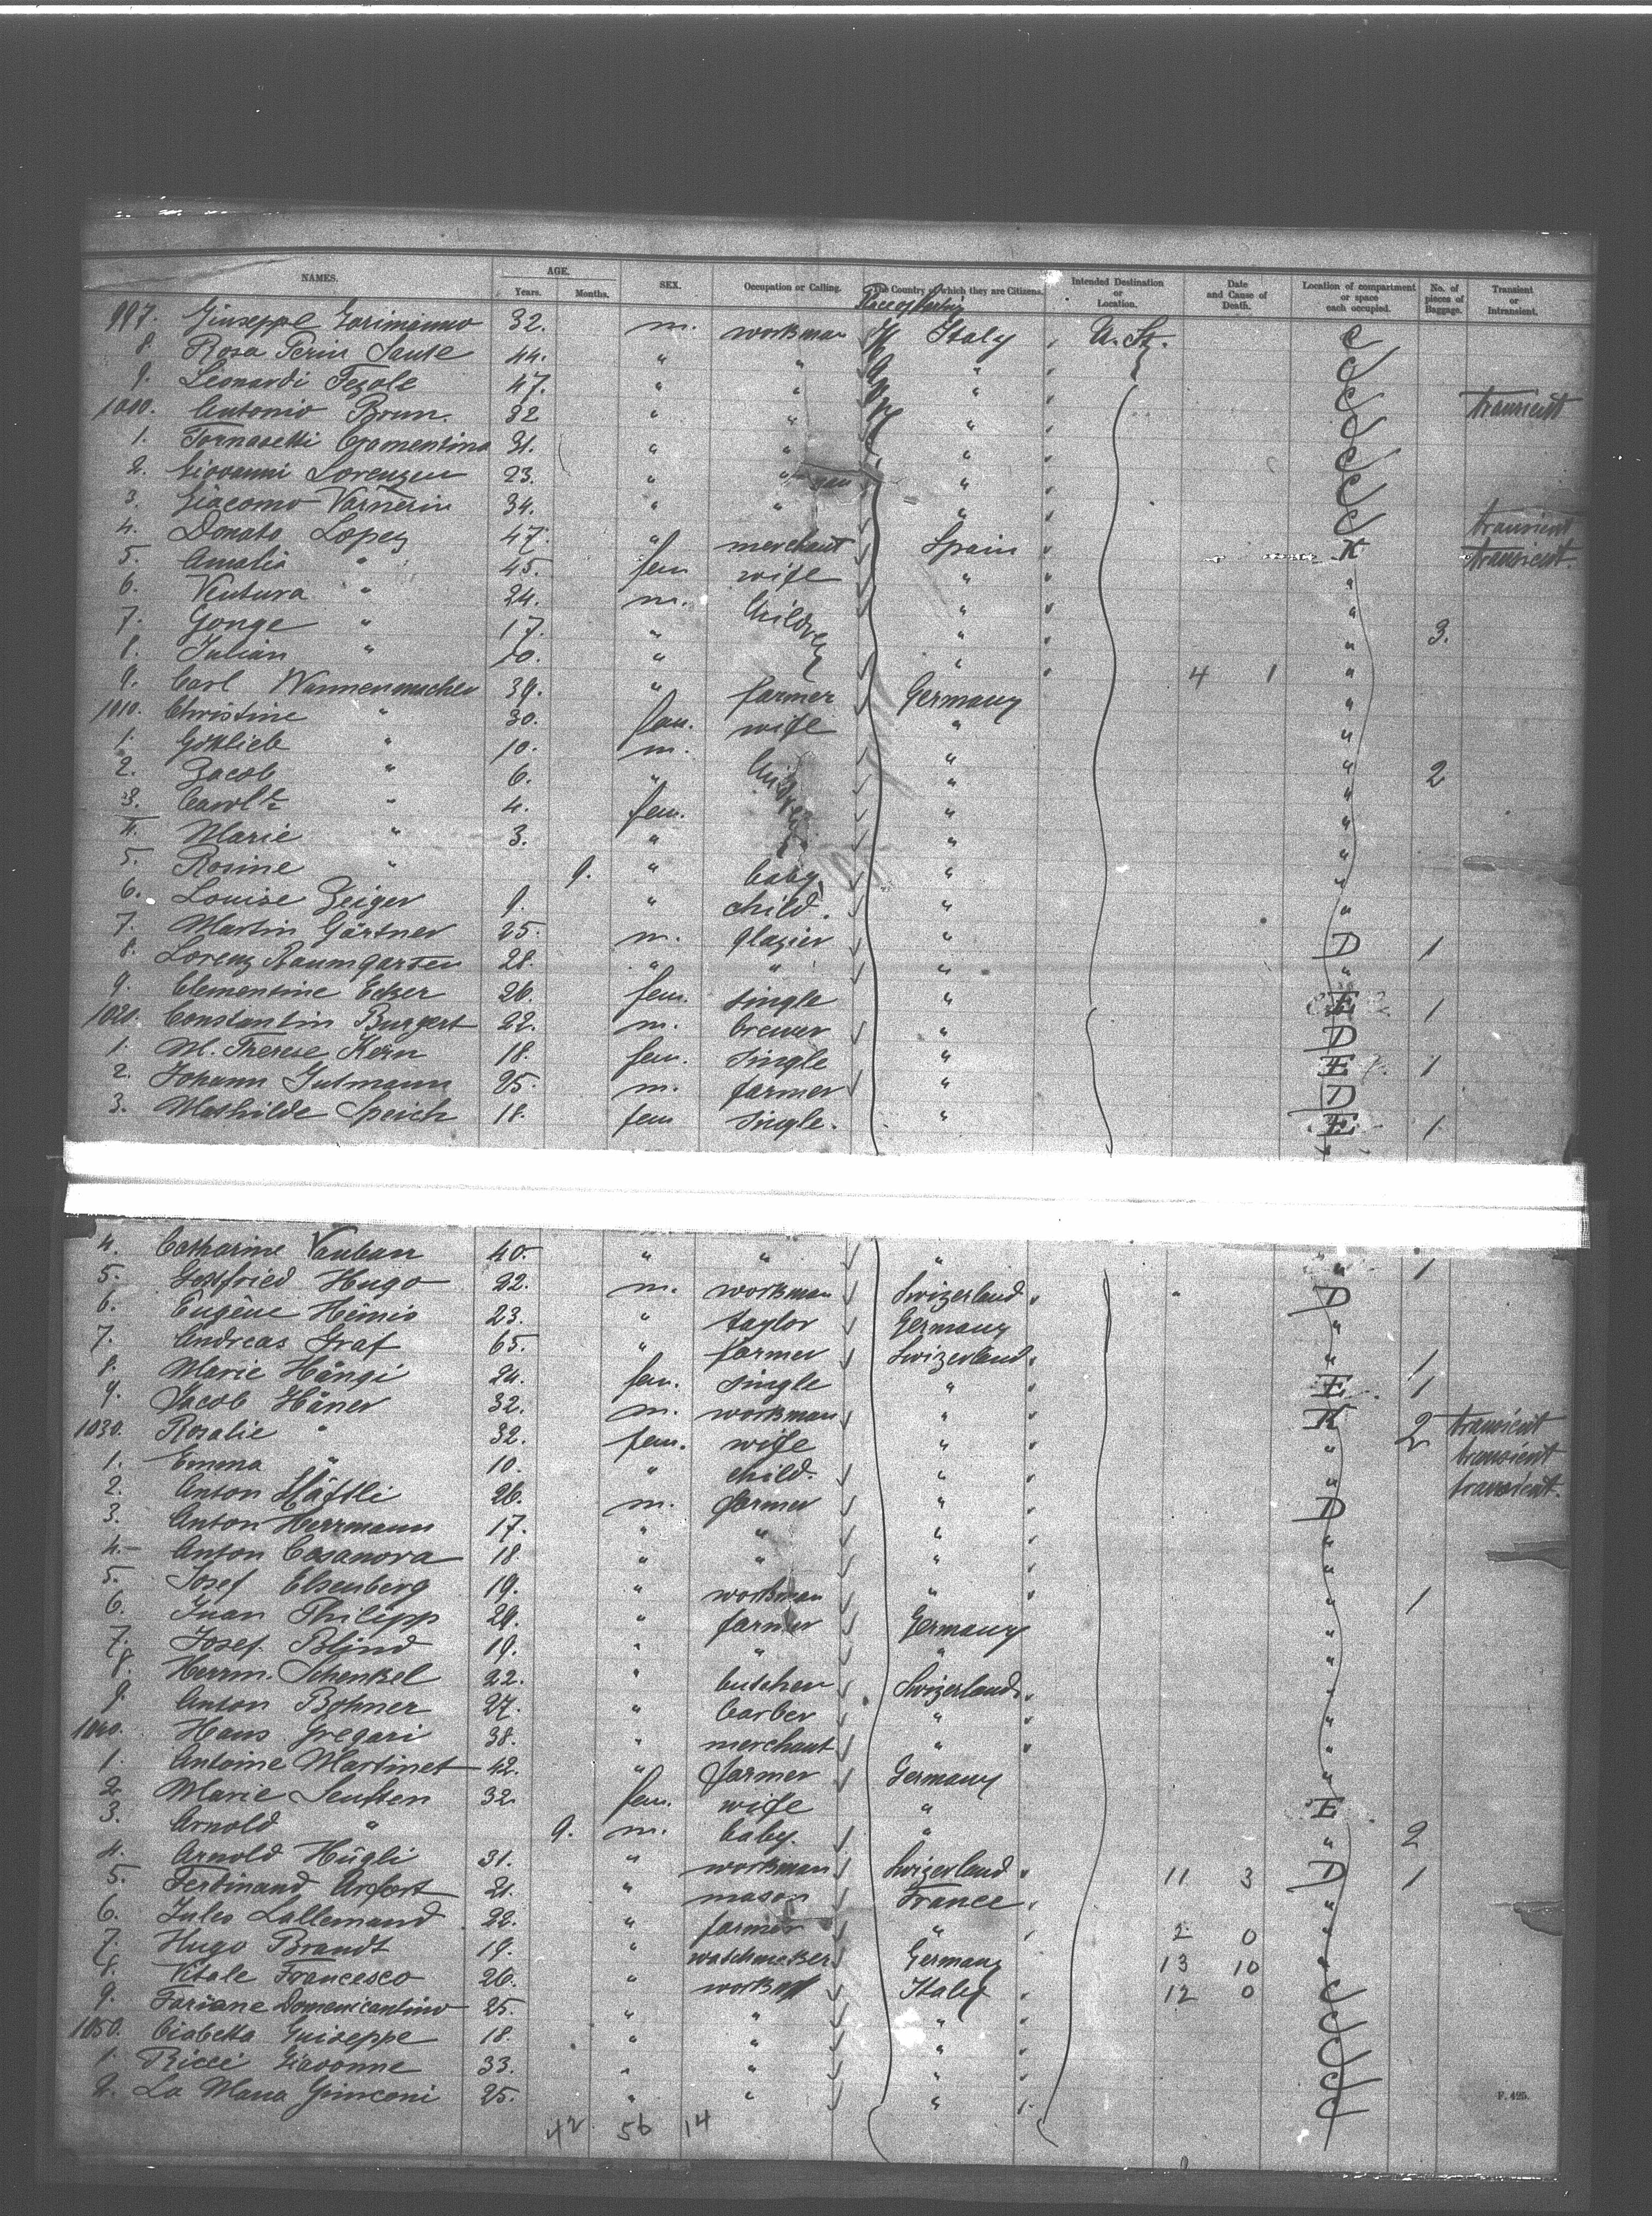 NAMES. AGE. Years. Months. SEX. Occupation or Calling. The Country of which they are Citizens. Intended Destination or Location. Date and Cause of Death. Location of compartment or space each occupied. No. of pieces of Baggage. Transient or Intransient.
997. Giuseppe Garimanno 32. m. workman Italy " U. St. C
8. Rosa Perin Sante 44. " " " " C
9. Leonardi Fezole 47. " " " " C transient
1000. Antonio Brun. 32 " " " " C
1. Tornasetti Cramentina 31. " " " " C
2. Giovanni Lorenzen 23. " " " " C
3. Giacomo Varnerin 34. " " " " C transient
4. Donato Lopez 47. " merchant Spain " K transient.
5. Amalia " 45. fem wife " " "
6. Ventura " 24. m. Children " " "
7. Gonge " 17. " " " " 3.
8. Julian " 10. " " " 4 1 "
9. Carl Wannenmacher 39. " farmer Germany "
1010. Christine " 30. fem. wife " "
1. Gottlieb " 10. m. Children " "
2. Jacob " 6. " " " 2
3. Carolte " 4. fem. " "
4. Marie " 3. " " "
5. Rosine " 9. " baby " "
6. Louise Zeiger 9. " child. " "
7. Martin Gärtner 25. m. glazier " D 1
8. Lorenz Baumgarten 28. " " " "
9. Clementine Ecker 26. fem. single " E 1
1020. Constantin Burgert 22. m. brewer " D
1. M. Therese Kern 18. fem. single " E 1
2. Johann Gutmann 25. m. farmer " D
3. Mathilde Speich 18. fem single. " E 1
4. Catharine Vauban 40. " " " " 1
5. Gottfried Hugo 22. m. workman Swizerland " D
6. Eugène Hémis 23. " taylor Germany "
7. Andreas Graf 65. " farmer Swizerland " " 1
8. Marie Hängi 24. fem. single " " E 1
9. Jacob Häner 32. m. workman " " K 2 transient
1030. Rosalie " 32. fem. wife " " " transient
1. Emma " 10. " child. " " " transient.
2. Anton Häftli 26. m. farmer " " D
3. Anton Herrmann 17. " " " " "
4. Anton Casanova 18 " " " " "
5. Josef Elsenberg 19. " workman " " " 1
6. Juan Philipp 29. " farmer Germany "
7. Josef Blind 19. " " " "
8. Herrm. Schenkel 22. " butcher Swizerland " "
9. Anton Bohner 27. " barber " " "
1040. Hans Gregari 38. " merchant " " "
1. Antoine Martinet 42. " farmer Germany "
2. Marie Senften 32. fem. wife " E
3. Arnold " 9. m. baby. " " 2
4. Arnold Hügli 31. " workman Swizerland " 11 3 D 1
5. Ferdinand Arfort 21. " mason France " "
6. Jules Lallemand 22. " farmer " " 2 0 "
7. Hugo Brandt 19. " watchmaker Germany 13 10 "
8. Vitale Francesco 26. " workman Italy " 12 0 C
9. Fariane Domenicantino 25. " " " " C
1050. Ciabetta Guiseppe 18. " " " " C
1. Ricci Giavonne 33. " " " " C
2. La Mana Gimconi 25. " " " " C
F. 425.
42. 56 14